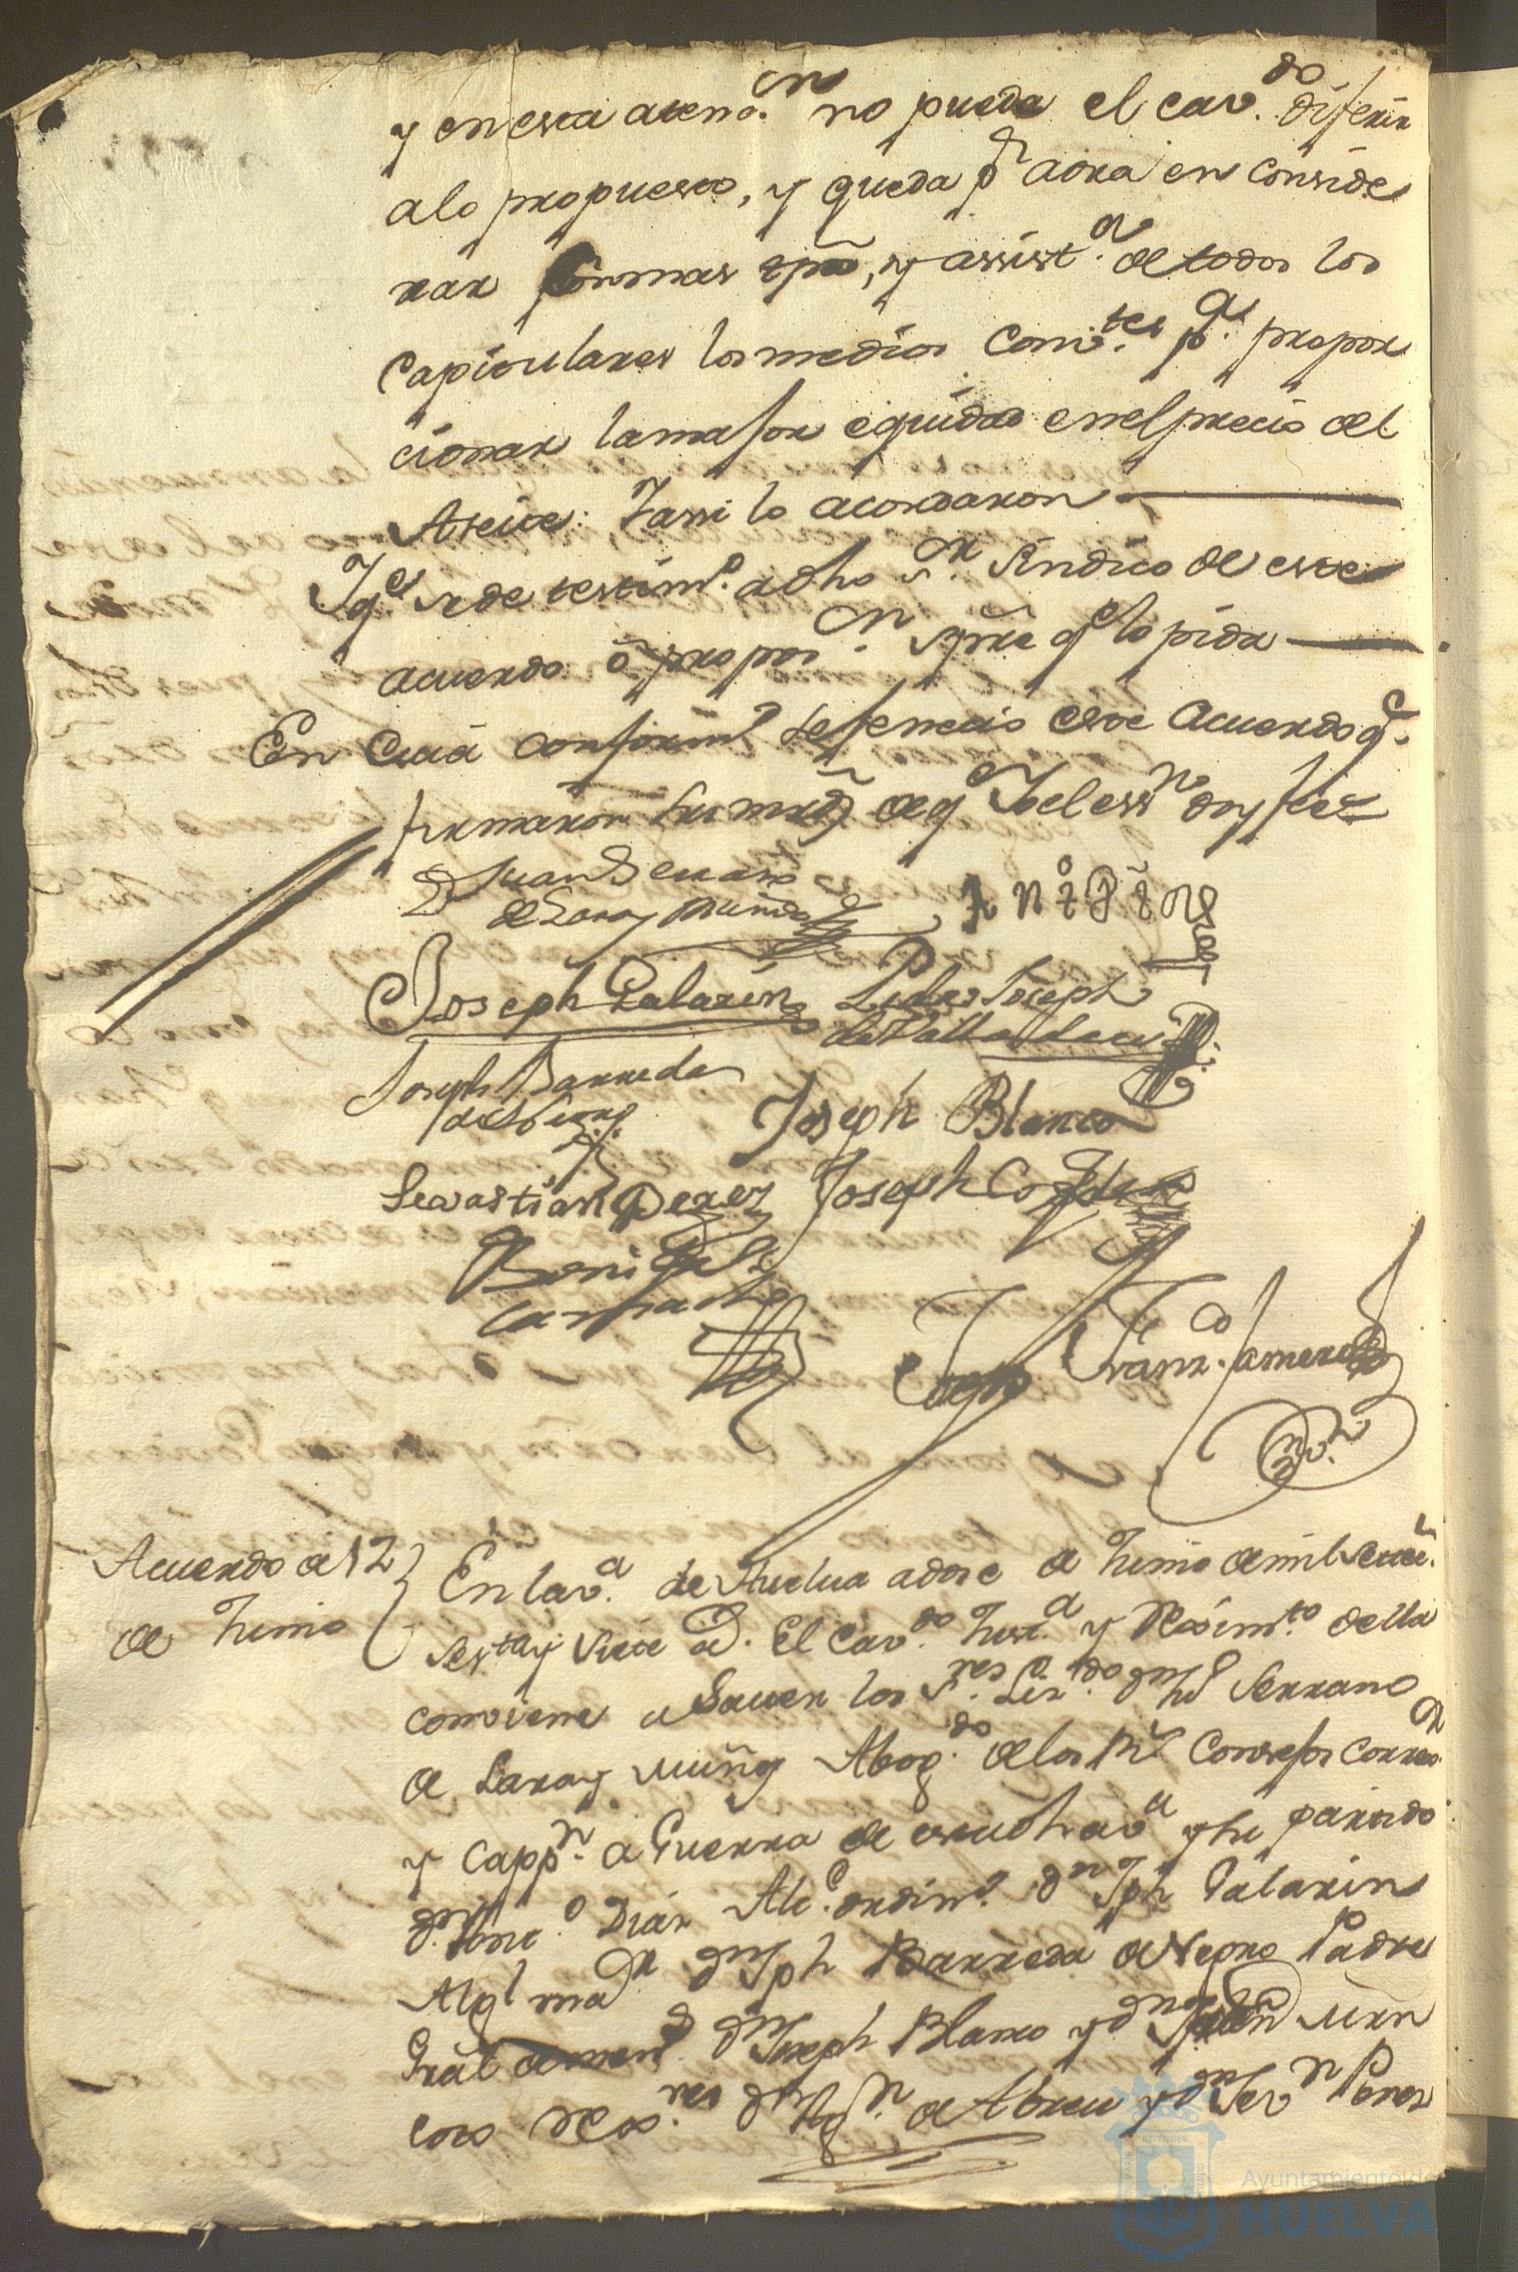 y en esta atenc.on no puede el cav.do diferir
a lo propuesto, y queda pr aora en conside
rar con mas tpõ, y assist.a de todos los
capitulares los medios conv.tes p.a propor
cionar la mayor equidad en el precio del
Aseite: Y assi lo acordaron
Y q.e se de testim.o a dho s.r sindico de este
acuerdo ô propos.on sp̃re q.e lo pida
En cuia conformd se fenecio este Acuerdo q.e
firmaron sus mrds de q.e Yo el essno doy fee
D Juan Serrano
de Lara y Muñoz
Anto Diaz
Joseph Galarin
Pedro Joseph
de Valladares
Joseph Barreda
de Negro
Joseph Blanco
Sevastian Perez
Joseph
Franz.co Jamero
Acuerdo de 12
de Junio
En la v.a de Huelva a dose de Junio de mil setec.s
ses.ta y siete a.s El cav.do Just.a y Reximt.o della
conviene a Saver los s.res Liz.do dn Jun Serrano
de Lara y Muñoz Abog.do de los Rs Consejos Correx.or
y Capp.n a Guerra de esta dha v.a y su partido
d.n Ant.o Diaz Alc.e ordin.o d.n Jph Galarin
Algl ma.or d.n Jph Barreda de Negro Padre
Gral de men.s d.n Joseph Blanco y d.n
Rex.res d.n Ag.n de Abreu y d.n Sev.n Perez
Ayuntamiento de
HUELVA